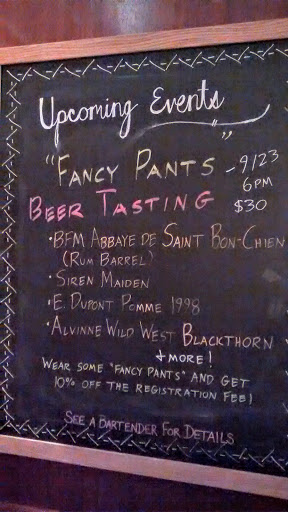 Upcoming Events
"Fancy Pants" - 9/23
6PM
Beer Tasting $30
• BFM Abbaye de Saint Bon-Chien
(Rum Barrel)
• Siren Maiden
• E. Dupont Pomme 1998
• Alvinne Wild West Blackthorn
+ more!
Wear some "fancy pants" and get
10% off the registration fee!
See a Bartender For Details